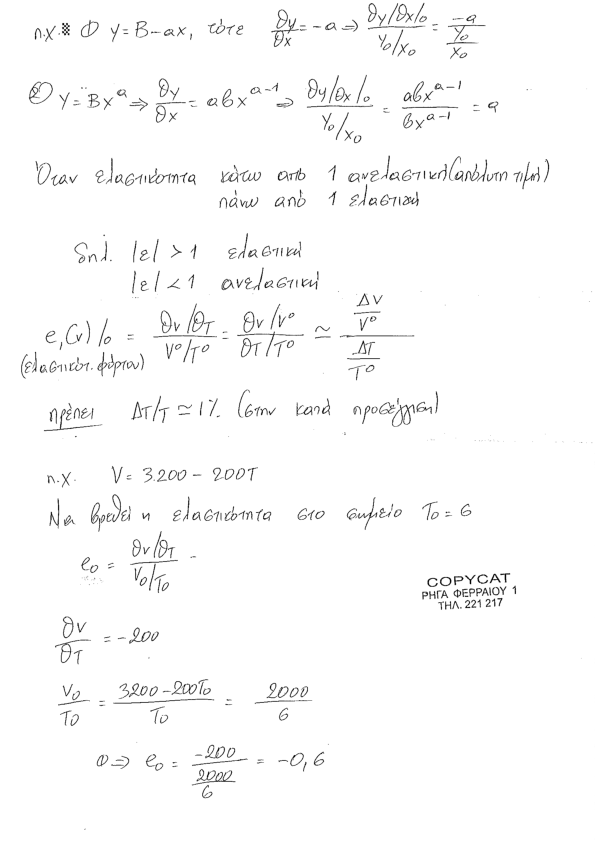 π.χ. ① y = B - ax, τότε ∂y/∂x = -a ⇒ (∂y/∂x|₀)/(y₀/x₀) = -a/(y₀/x₀)
② y = Bx^a ⇒ ∂y/∂x = abx^(a-1) ⇒ (∂y/∂x|₀)/(y₀/x₀) = abx^(a-1)/bx^(a-1) = a
Όταν ελαστικότητα κάτω από 1 ανελαστική (απόλυτη τιμή)
πάνω από 1 ελαστική
δηλ. |ε| > 1 ελαστική
|ε| < 1 ανελαστική
e,(v)|₀ = (∂v/∂T)/(V⁰/T⁰) = (∂v/v⁰)/(∂T/T⁰) ≃ (ΔV/V⁰)/(ΔT/T⁰)
(ελαστικότ. φόρτου)
πρέπει ΔT/T ≃ 1% (στην κατά προσέγγιση)
π.χ. V = 3.200 - 200T
Να βρεθεί η ελαστικότητα στο σημείο T₀ = 6
e₀ = (∂v/∂T)/(V₀/T₀)
COPYCAT
ΡΗΓΑ ΦΕΡΡΑΙΟΥ 1
ΤΗΛ. 221 217
∂v/∂T = -200
V₀/T₀ = (3200 - 200T₀)/T₀ = 2000/6
① ⇒ e₀ = -200/(2000/6) = -0,6